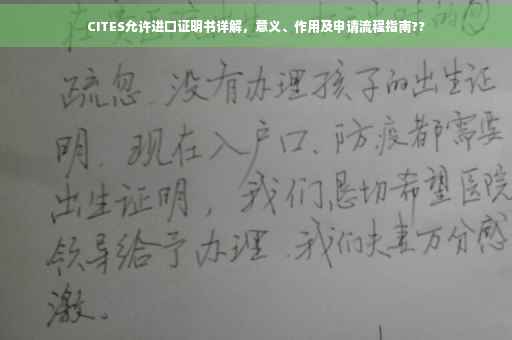 CITES允许进口证明书详解，意义、作用及申请流程指南??
疏忽.没有办理孩子的出生证
明.现在入户口、防疫都需要
出生证明，我们恳切希望医院
领导给予办理.我们夫妻万分感
激。